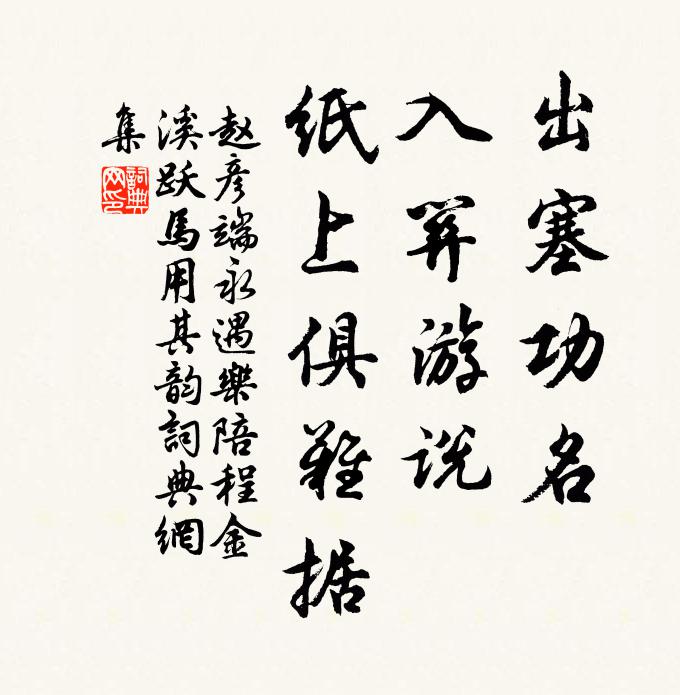 出塞功名
入关游说
纸上俱难据
赵彦端永遇樂陪程金
溪跃馬用其韵詞典網
集
詞典
网印